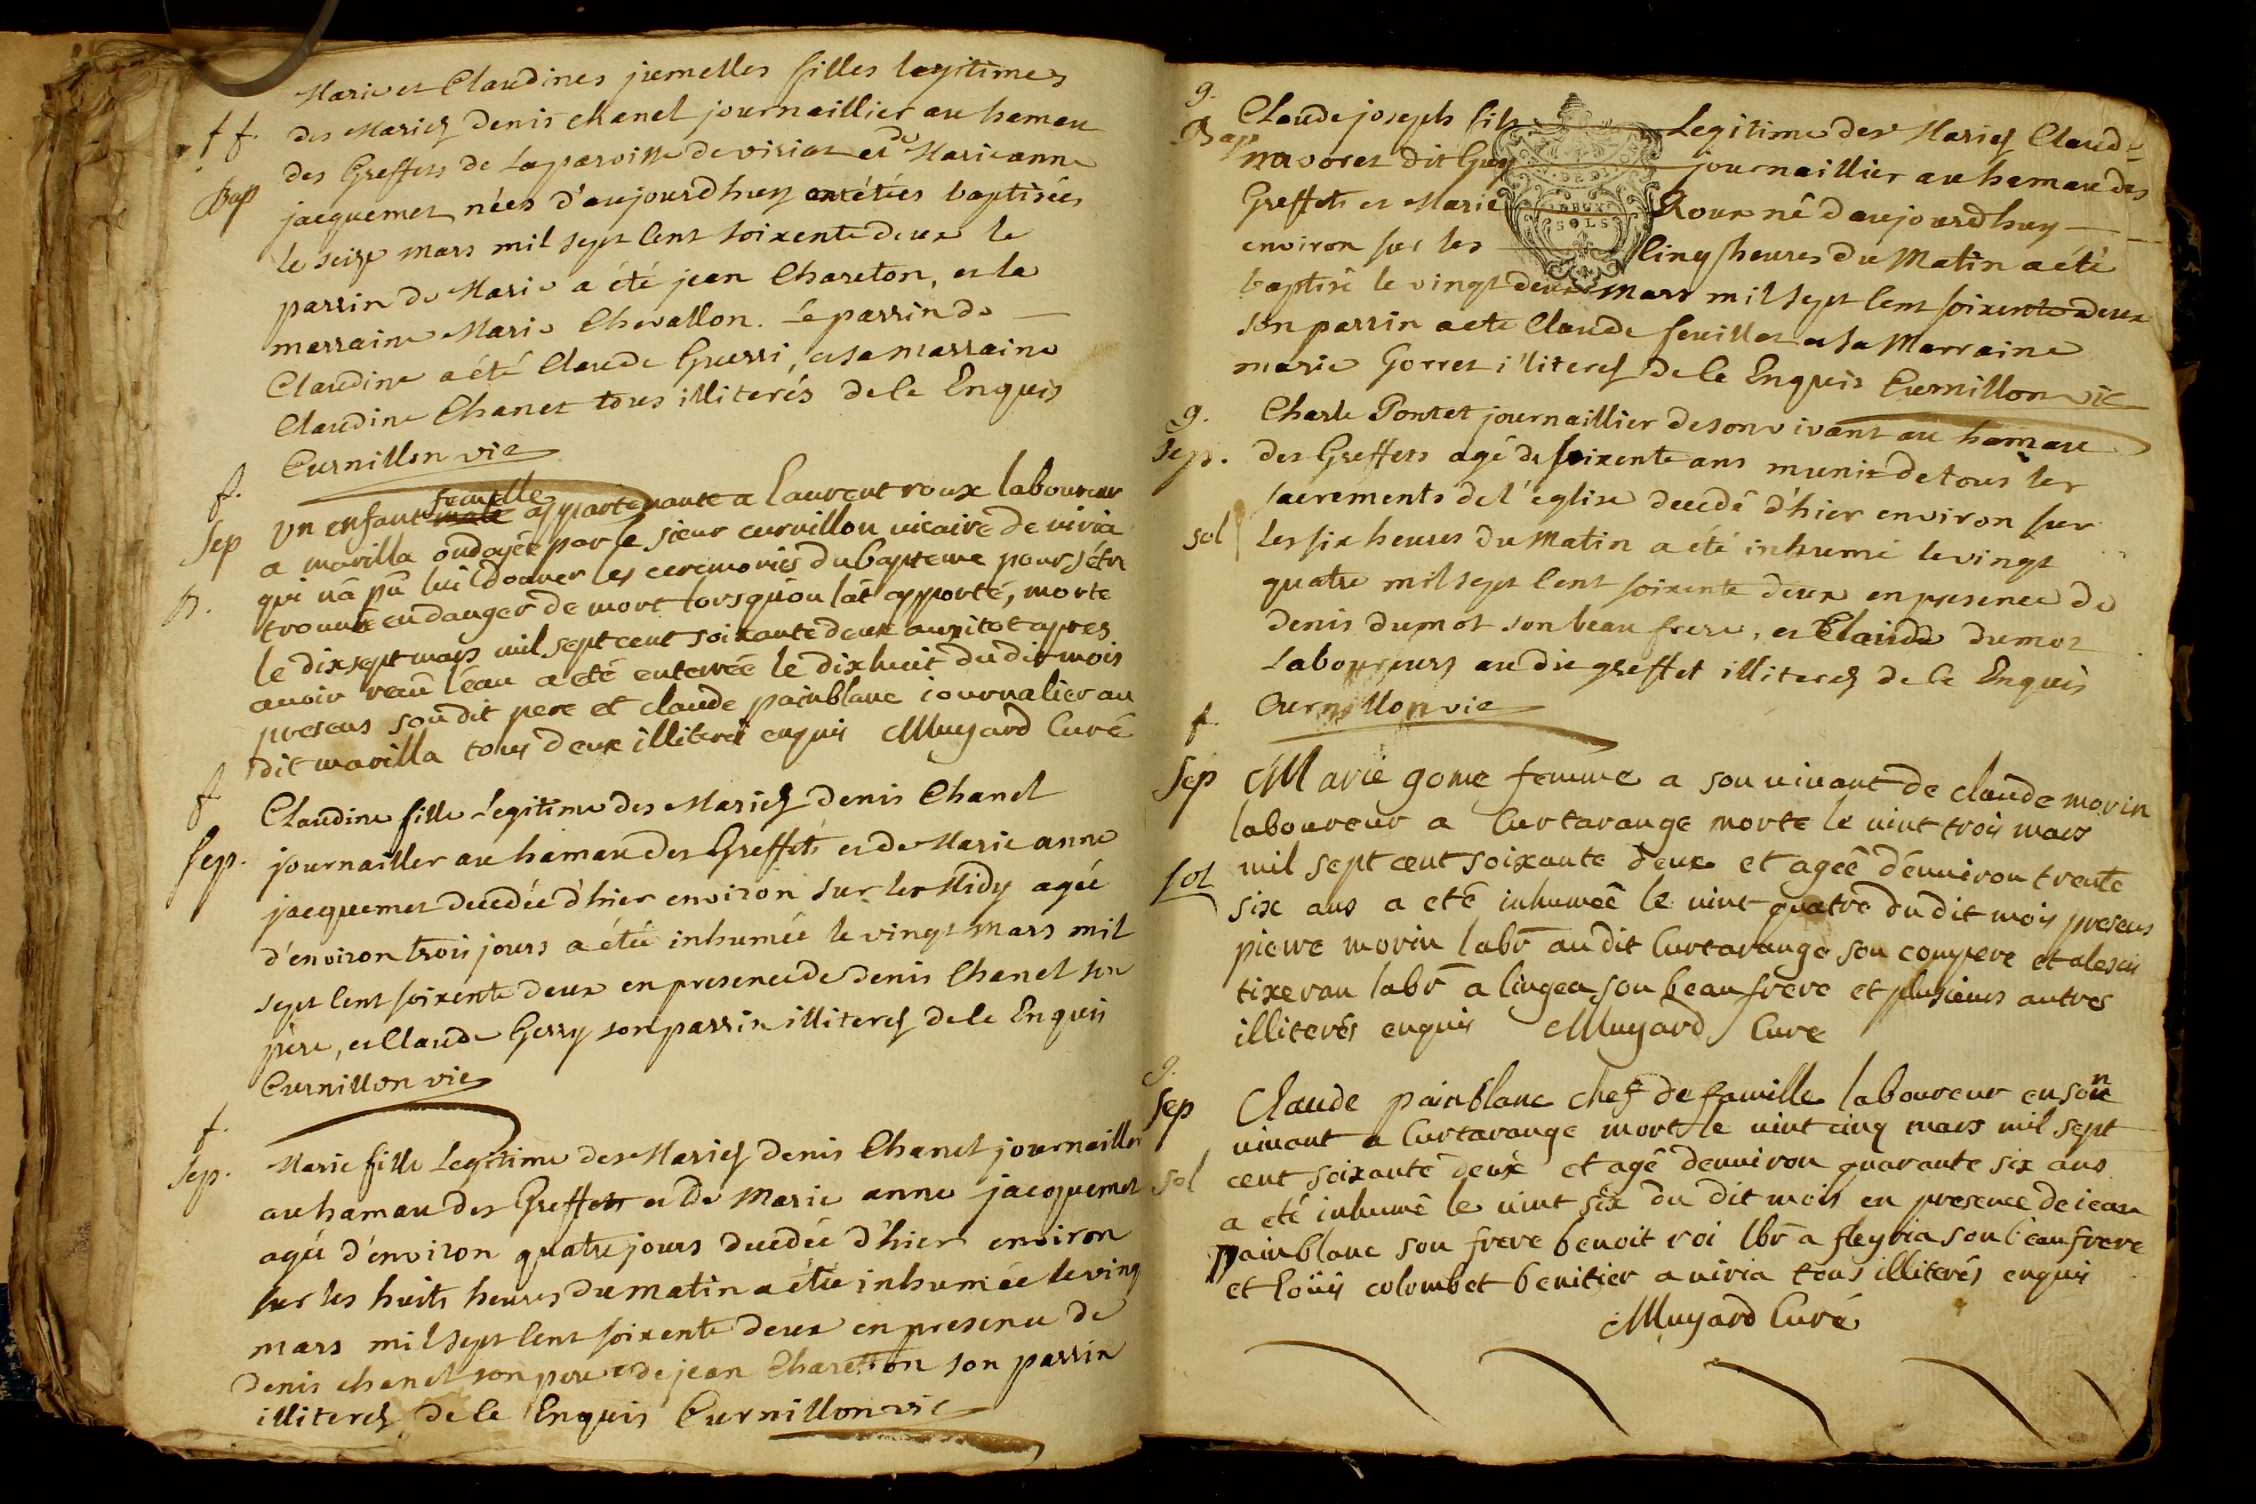 Marie et Claudines jumelles filles legitimes
ff. des Mariez denis chanel journaillier au hamau
des Greffets de Laparoisse de viriat et de Marie anne
Bap jacquemet nées d'aujourdhuy ont étées baptisées
le seize mars mil sept Cent soixente deux le
parrin de Marie a été jean Chareton, et la
marraine Marie Chevallon. Le parrin de
Claudine a été Claude Guerri, et sa marraine
Claudine Chanet tous illiterés de ce Enquis
Curnillon vic
f.
Sep Un enfant male femelle appartenante a laurent roux laboureur
a marilla ondoyée par le sieur curnillon vicaire de viria
qui n'a pû lui donner les ceremonies du bapteme pour s'étre
trouvée en danger de mort lorsqu'on l'at apporté, morte
le dixsept mars mil sept cent soixante deux aussitot apres
avoir recû l'eau a eté enterrée le dixhuit du dit mois
presens son dit pere et claude painblanc journalier au
dit marilla tous deux illiterés enquis Muyard Curé
f.
Claudine fille Legitime des Mariez denis Chanel
Sep. journailler au hamau des Greffets et de Marie anne
jacquemet decedée d'hier environ sur les Midy agée
d'environ trois jours a étée inhumée le vingt Mars mil
sept Cent soixente deux en presence de denis Chanel son
père, et Claude Gerry son parrin illiterez de ce Enquis
Curnillon vic
f.
Sep. Marie fille Legitime des Mariez denis Chanel journailler
au hamau des Greffets et de Marie anne jacquemet
agée d'environ quatre jours decedée d'hier environ
sur les huits heures du matin a étée inhumée le ving
mars mil sept Cent soixente deux en presence de
denis chanel son pere et de jean Charetton son parrin
illiterez de ce Enquis Curnillon vic
g.
Bap Claude joseph fils Legitime des Mariez Claude
navoret dit Guy journaillier au hamau des
Greffets et Marie Roux né d'aujourdhuy
environ sur les Cinq heures du Matin a été
baptisé le vingt deux mars mil sept Cent soixente deux
son parrin a eté Claude feuillet et sa Marraine
marie Gorret illiterez de ce Enquis Curnillon vic
g.
Sep. Charle Pontet journaillier de son vivant au hamau
des Greffets agé de soixente ans munit de tous les
sacrements de l'eglise decedé d'hier environ sur
sol les six heures du Matin a été inhumé le vingt
quatre mil sept Cent soixente deux en presence de
denis dumot son beau frere, et Claude dumot
Laboureurs au dit greffet illiterez de ce Enquis
Curnillon vic
f.
Sep Marie gome femme a son vivant de claude morin
laboureur a Curtarange morte le vint trois mars
sol mil sept cent soixante deux et agée d'environ trente
six ans a eté inhumée le vint quatre du dit mois presens
pierre morin labr au dit Curtarange son compere et alesis
tixeran labr a lingea son beau frere et plusieurs autres
illiterés enquis Muyard Cure
g.
Sep Claude painblanc chef de famille laboureur en son
vivant a Curtarange mort le vint cinq mars mil sept
sol cent soixante deux et agé denviron quarante six ans
a eté inhumé le vint six du dit mois en presence de jean
painblanc son frere benoit roi lbr a fleyria son beau frere
et loüis colombet benitier a viria tous illiterés enquis
Muyard Curé